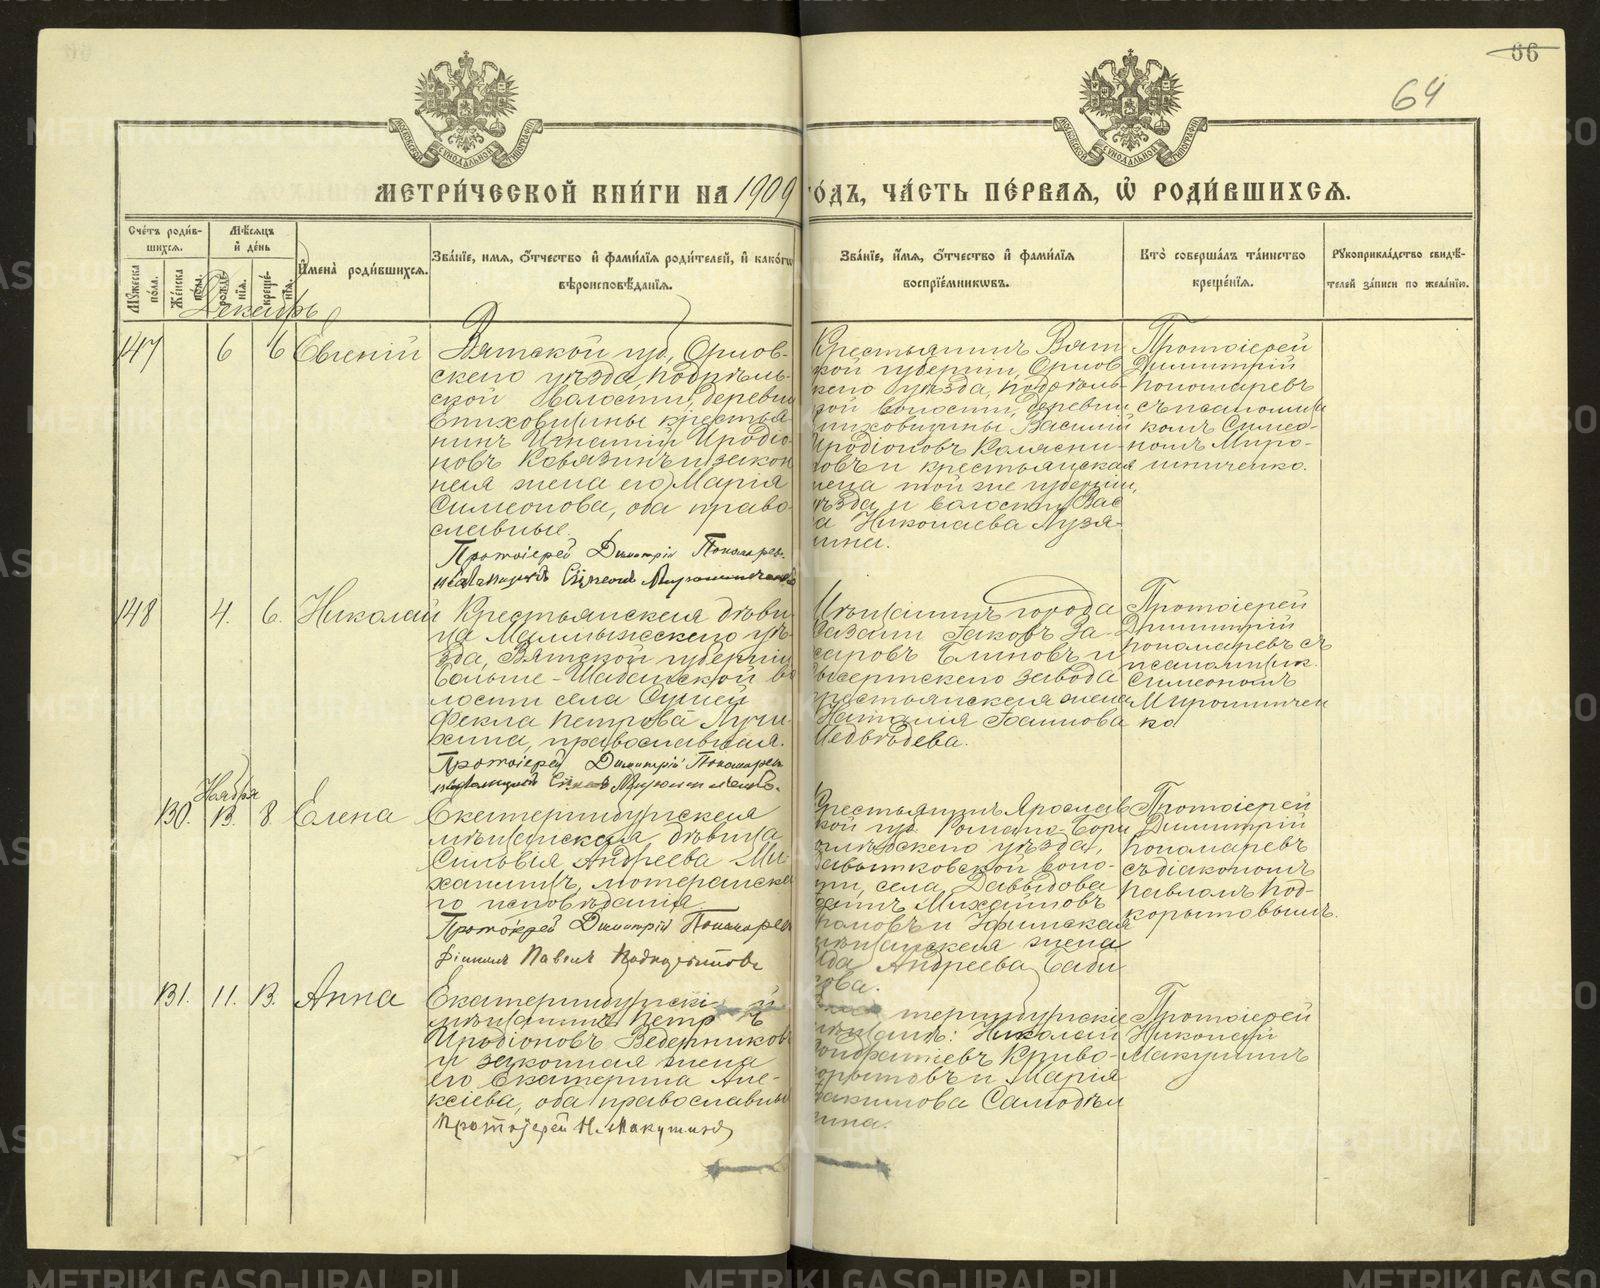 66
64
МЕТРИ́ЧЕСКОЙ КНИ́ГИ НА 1909 ГО́ДЪ, ЧА́СТЬ ПЕ́РВАЯ, Ѽ РОДИ́ВШИХСЯ.
Сче́тъ роди́в-
шихся.
Му́жеска по́ла.
Же́нска по́ла.
Мѣ́сяцъ
и҆ де́нь
рожде́нїя.
креще́нїя.
И҆мена̀ роди́вшихся.
Зва́нїе, и́мя, ѻ҆́тчество и҆ фами́лїя роди́телей, и҆ како́гѡ
вѣроисповѣ́данїя.
Зва́нїе, и҆́мя, ѻ҆́тчество и҆ фами́лїя
воспрїе́мникѡвъ.
Кто̀ соверша́лъ та́инство
креще́нїя.
Рꙋкоприкла́дство свидѣ́-
телей за́писи по жела́нїю.
Декабрь
147 6 6 Евгеній
Вятской губ., Орлов-
скаго уѣзда, Подрель-
ской волости, деревни
Епиховщины крестья-
нинъ Игнатій Иродіо-
новъ Ковязинъ и закон
ная жена его Марія
Симеонова, оба право-
славные.
Протоіерей Димитрій Пономарев
псаломщикъ Симеонъ Мирошниченко
Крестьянинъ Вят
ской губерніи, Орлов
скаго уѣзда, Подрель-
ской волости, деревни
Епиховщины Василій
Иродіоновъ
новъ и крестьянская
жена той же губерніи,
уѣзда и волости Вас
са Николаева Лузя-
нина.
Протоіерей
Димитрій
Пономаревъ
съ псаломщи
комъ Симео-
номъ Миро-
шниченко.
148 4. 6. Николай
Крестьянская дѣви
ца Малмыжскаго уѣ-
зда, Вятской губерніи
Больше-Шабанской во
лости села Сушей
Фекла Петрова Лучи-
хина, православная.
Протоіерей Димитрій Пономарев
псаломщикъ Симеонъ Мирошниченко.
Мѣщанинъ города
Казани Іаковъ За-
харовъ Блиновъ и
Сысертскаго завода
крестьянская жена
Наталія Іоаннова
Медвѣдева.
Протоіерей
Димитрій
Пономаревъ съ
псаломщик.
Симеономъ
Мирошничен
ко
Ноября
130. 13. 8. Елена
Екатеринбургская
мѣщанская дѣвица
Сильвія Андреева Ми-
ханницъ, лютеранска
го исповѣданія.
Протоіерей Димитрій Пономарев
Діаконъ Павелъ Подкорытовъ
Крестьянинъ Ярослав
ской губ. Романо-Бори
соглѣбскаго уѣзда,
Давытковской воло-
сти, села Давыдова
Михайловъ
и Уфимская
мѣщанская жена
Ида Андреева Баби
кова.
Протоіерей
Димитрій
Пономаревъ
съ діакономъ
Павломъ Под-
корытовымъ.
131. 11. 13. Анна
Екатеринбургскій
мѣщанинъ Петръ
Иродіоновъ Ведерников
и законная жена
его Екатерина Але-
ксіева, оба православные
Протоіерей Н. Макушинъ
Екатеринбургскіе
мѣщане: Николай
Понфатіевъ Криво-
корытовъ и Марія
Іакимова Самодѣл
кина.
Протоіерей
Николай
Макушинъ
METRIKI.GASO-URAL.RU